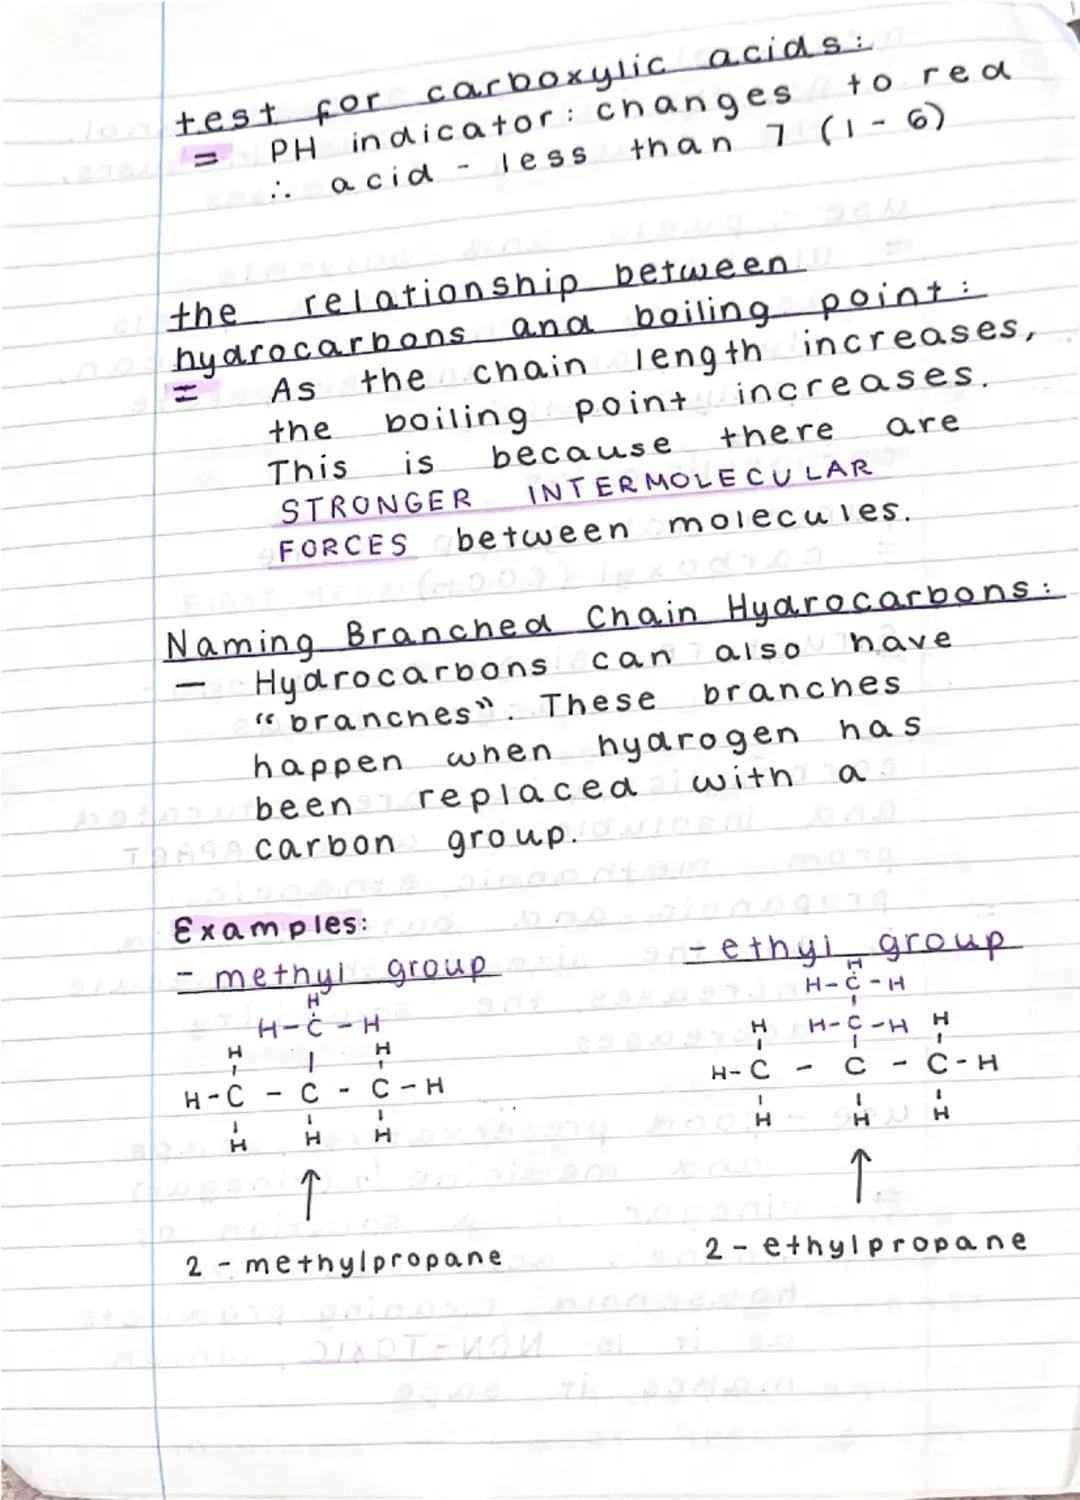 test for carboxylic acids:
= PH indicator: changes to red
∴ acid - less than 7 (1 - 6)
the relationship between
hydrocarbons and boiling point:
= As the chain length increases,
the boiling point increases.
This is because there are
STRONGER INTERMOLECULAR
FORCES between molecules.
Naming Branched Chain Hydrocarbons:
- Hydrocarbons can also have
"branches". These branches
happen when hydrogen has
been replaced with a
carbon group.
Examples:
- methyl group
H
H-C-H
H H
H-C - C - C-H
H H H
↑
2 - methylpropane
- ethyl group
H
H-C-H
H H-C-H H
H-C - C - C-H
H H H
↑
2 - ethylpropane